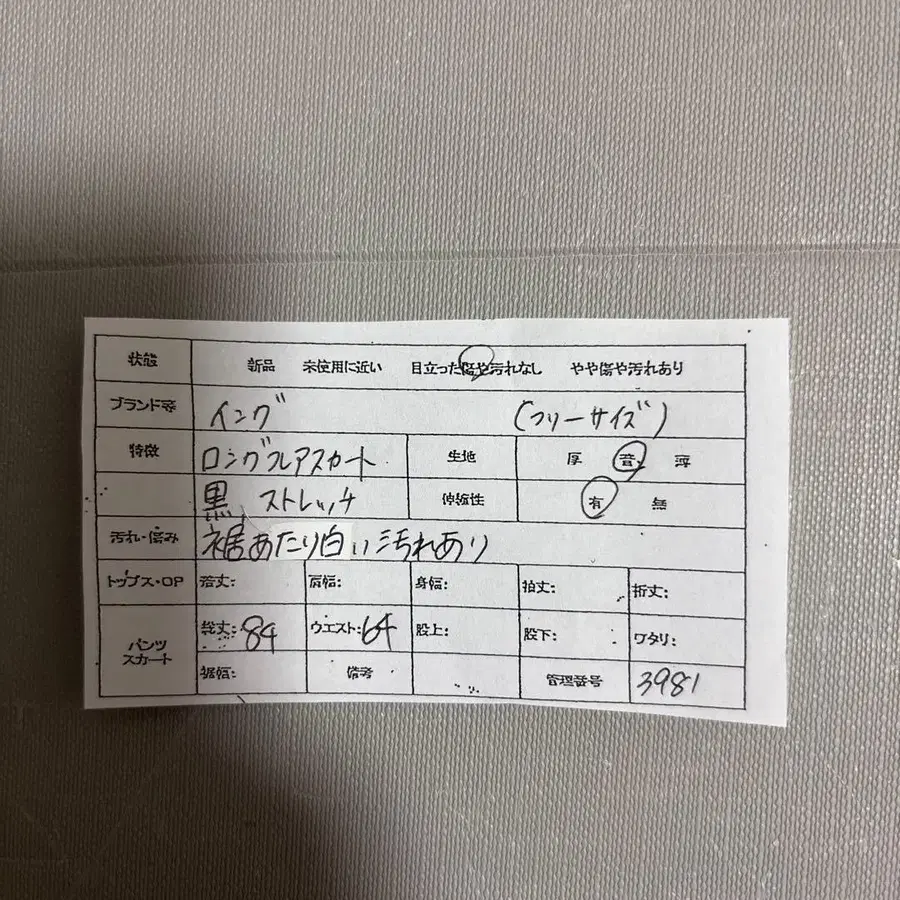 状態 新品 未使用に近い 目立った傷や汚れなし やや傷や汚れあり
ブランド等 イング (フリーサイズ)
特徴 ロングフレアスカート 生地 厚 普 薄
黒、ストレッチ 伸縮性 有 無
汚れ・傷み 裾あたり白い汚れあり
トップス・OP 着丈: 肩幅: 身幅: 袖丈: 裄丈:
パンツ スカート 総丈:84 ウエスト:64 股上: 股下: ワタリ:
裾幅: 備考 管理番号 3981